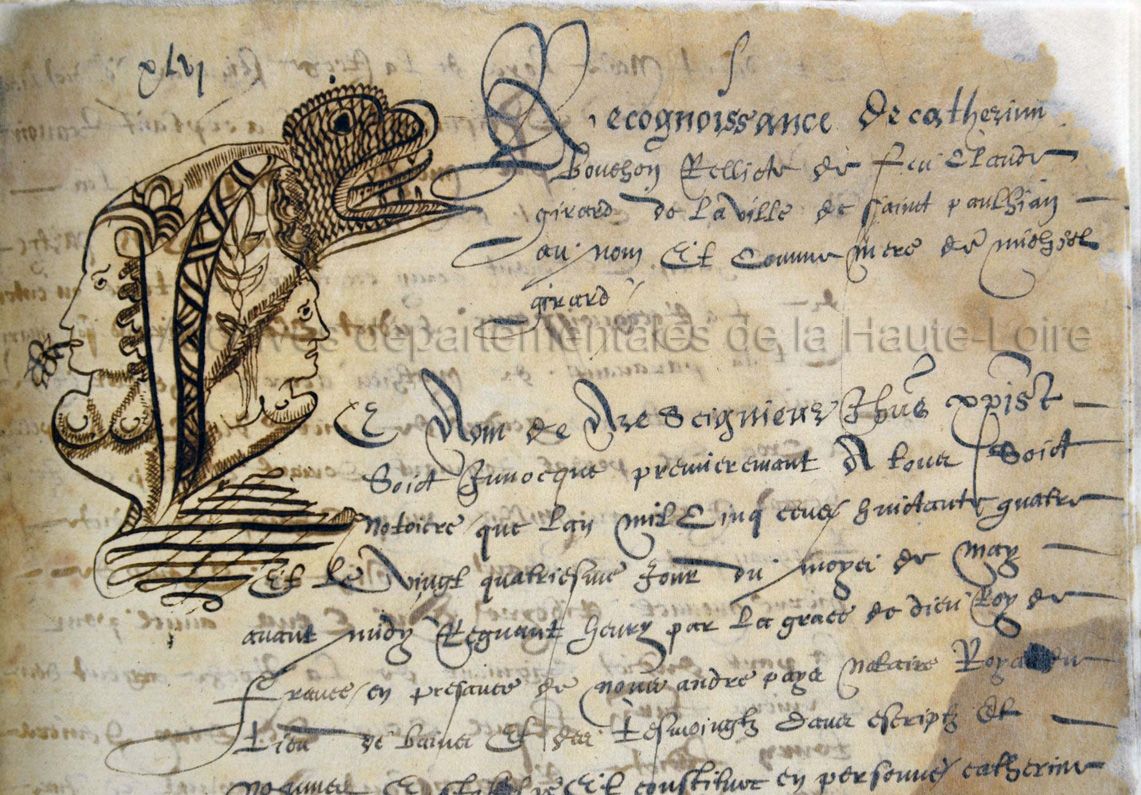 xlvi
Recognoissance de catherine
bouchon Rellicte de feu Claude
girard de la ville de saint paulhian
au nom Et comme mere de michel
girard
Archives départementales de la Haute-Loire
Et Nom de Nre Seignieur Jhus xpist
Soict Invocque premieremant A tous Soict
notoire que lan mil Cinq cens huictante quatre
Et le vingt quatriesme Jour du moys de may
avant midy Regnant henry par la grace de dieu Roy de
france en presance de nous andre paye notaire Royal du
lieu de bains Et des tesmoingtz davas escriptz Et
nommes Et constitue en personne catherine